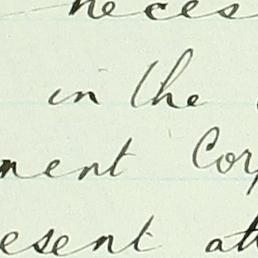 neces
in the
ment Cor
esent at